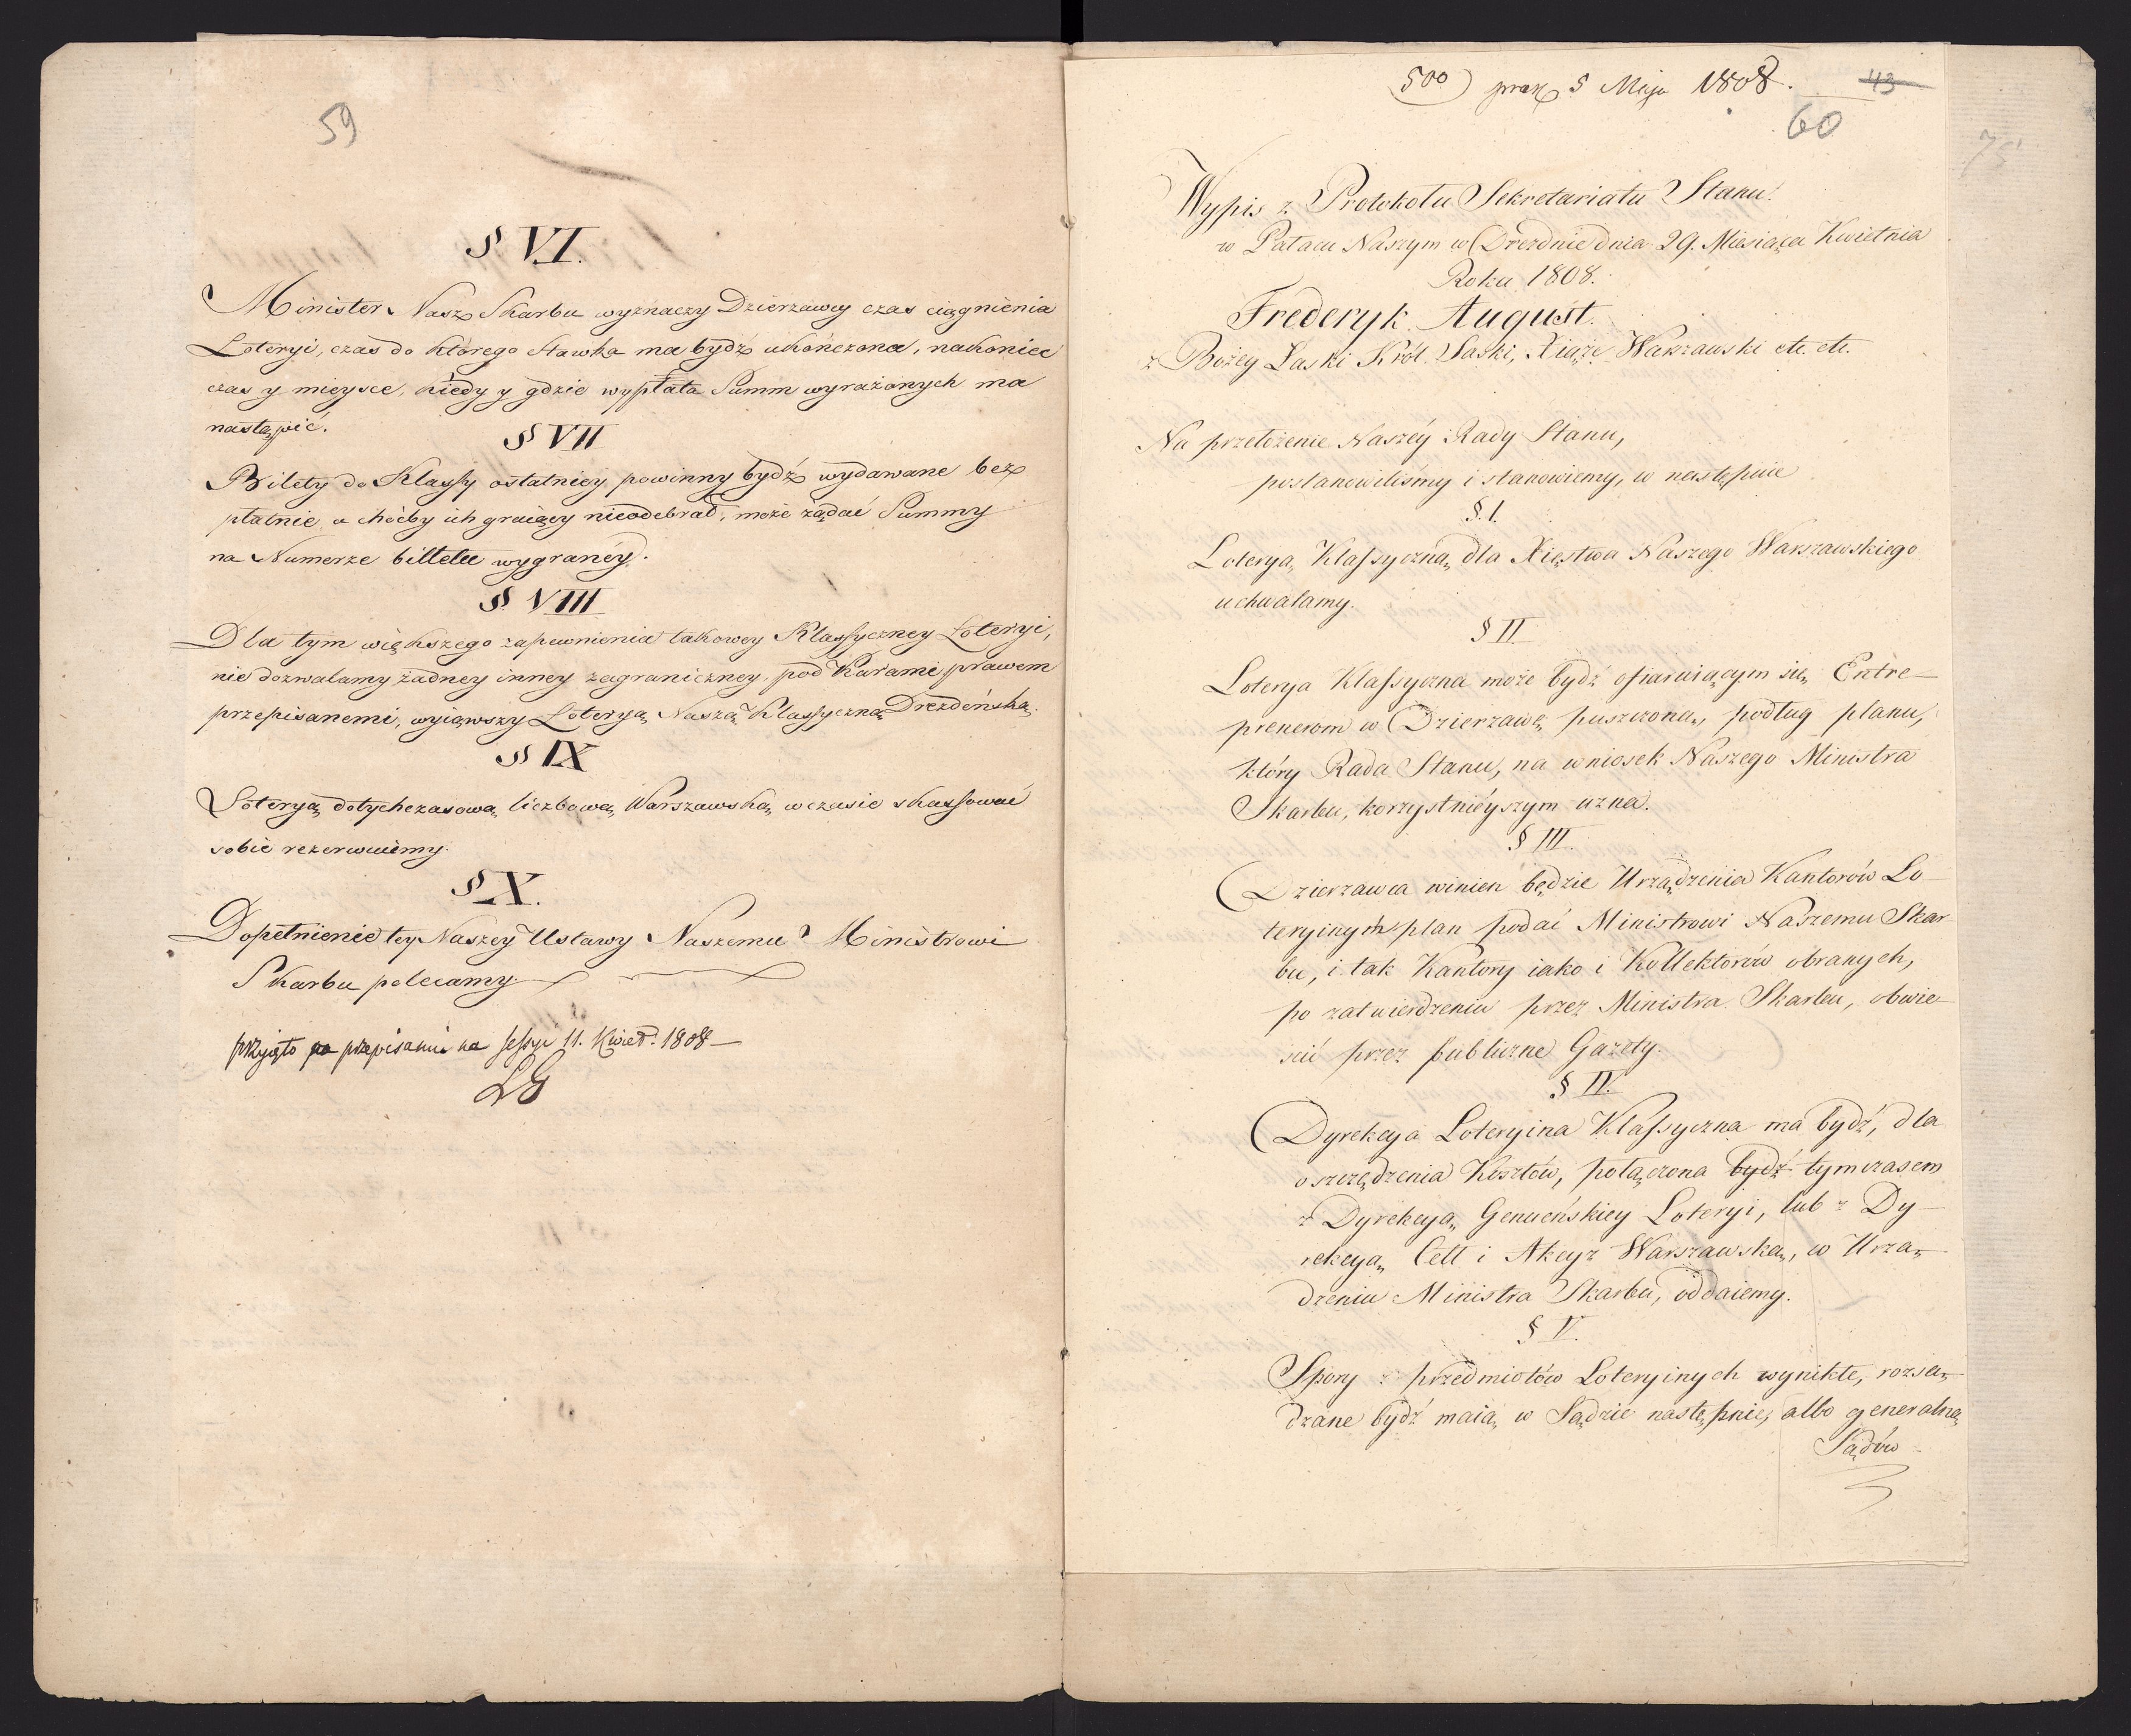 59
§ VI.
Minister Nasz Skarbu wyznaczy Dzierzawcy czas ciągnienia
Loteryi, czas do którego stawka ma bydź ukończona, nakoniec
czas y mieysce, kiedy y gdzie wypłata Summ wyrażonych ma
nastąpić.
§ VII
Bilety do Klassy ostatniey powinny bydź wydawane bez
płatnie, a choćby ich graiący nieodebrał, może żądać Summy
na Numerze billetu wygraney.
§ VIII
Dla tym większego zapewnienia takowey Klassyczney Loteryi,
nie dozwalamy żadney inney zagraniczney, pod Karami prawem
przepisanemi, wyiąwszy Loteryą Naszą Klassyczną Drezdeńską.
§ IX
Loteryą dotychczasową liczbową Warszawską w czasie skassować
sobie rezerwuiemy.
§ X.
Dopełnienie tey Naszey Ustawy Naszemu Ministrowi
Skarbu polecamy
przyjęto po przepisaniu na sessyi 11. Kwiet. 1808
LG
500) praez 5 Maja 1808.
43
60
75
Wypis z Protokołu Sekretariatu Stanu.
w Pałacu Naszym w Dreznie dnia 29. Miesiąca Kwietnia
Roku 1808.
Frederyk August.
z Bożey Łaski Król Saski, Xiąże Warszawski etc. etc.
Na przełożenie Naszéy Rady Stanu,
postanowiliśmy i stanowiemy, w następuie
§. I.
Loteryą Klassyczną dla Xięstwa Naszego Warszawskiego
uchwalamy.
§ II
Loterya Klassyczna może bydź ofiaruiącym się Entre-
prenerom w Dzierzawę puszczoną, podług planu,
który Rada Stanu, na wniosek Naszego Ministra
Skarbu, korzystnieyszym uzna.
§ III.
Dzierzawca winien będzie Urządzenia Kantorów Lo-
teryinych plan podać Ministrowi Naszemu Skar-
bu, i tak Kantory iako i Kollektorów obranych,
po zatwierdzeniu przez Ministra Skarbu, obwie-
ścić przez publiczne Gazety.
§ IV.
Dyrekcya Loteryina Klassyczna ma bydź, dla
oszczędzenia Kosztów, połączona bydź tymczasem
z Dyrekcyą Genueńskiey Loteryi, lub z Dy-
rekcyą Cell i Akcyz Warszawską, w Urzą-
dzeniu Ministra Skarbu, oddaiemy.
§ V.
Spory z przedmiotów Loteryinych wynikłe, rozsą-
dzane bydź maią w Sądzie następnie, albo generalną
Sądów